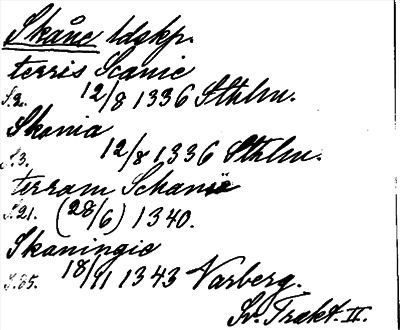 Skåne ldskp.
terris Scanie
S.2. 12/8 1336 Sthlm.
Skania
S.3. 12/8 1336 Sthlm.
terram Schanie
S.21. (28/6) 1340.
Skaningie
S.35. 18/11 1343 Varberg.
Sv. Trakt. II.